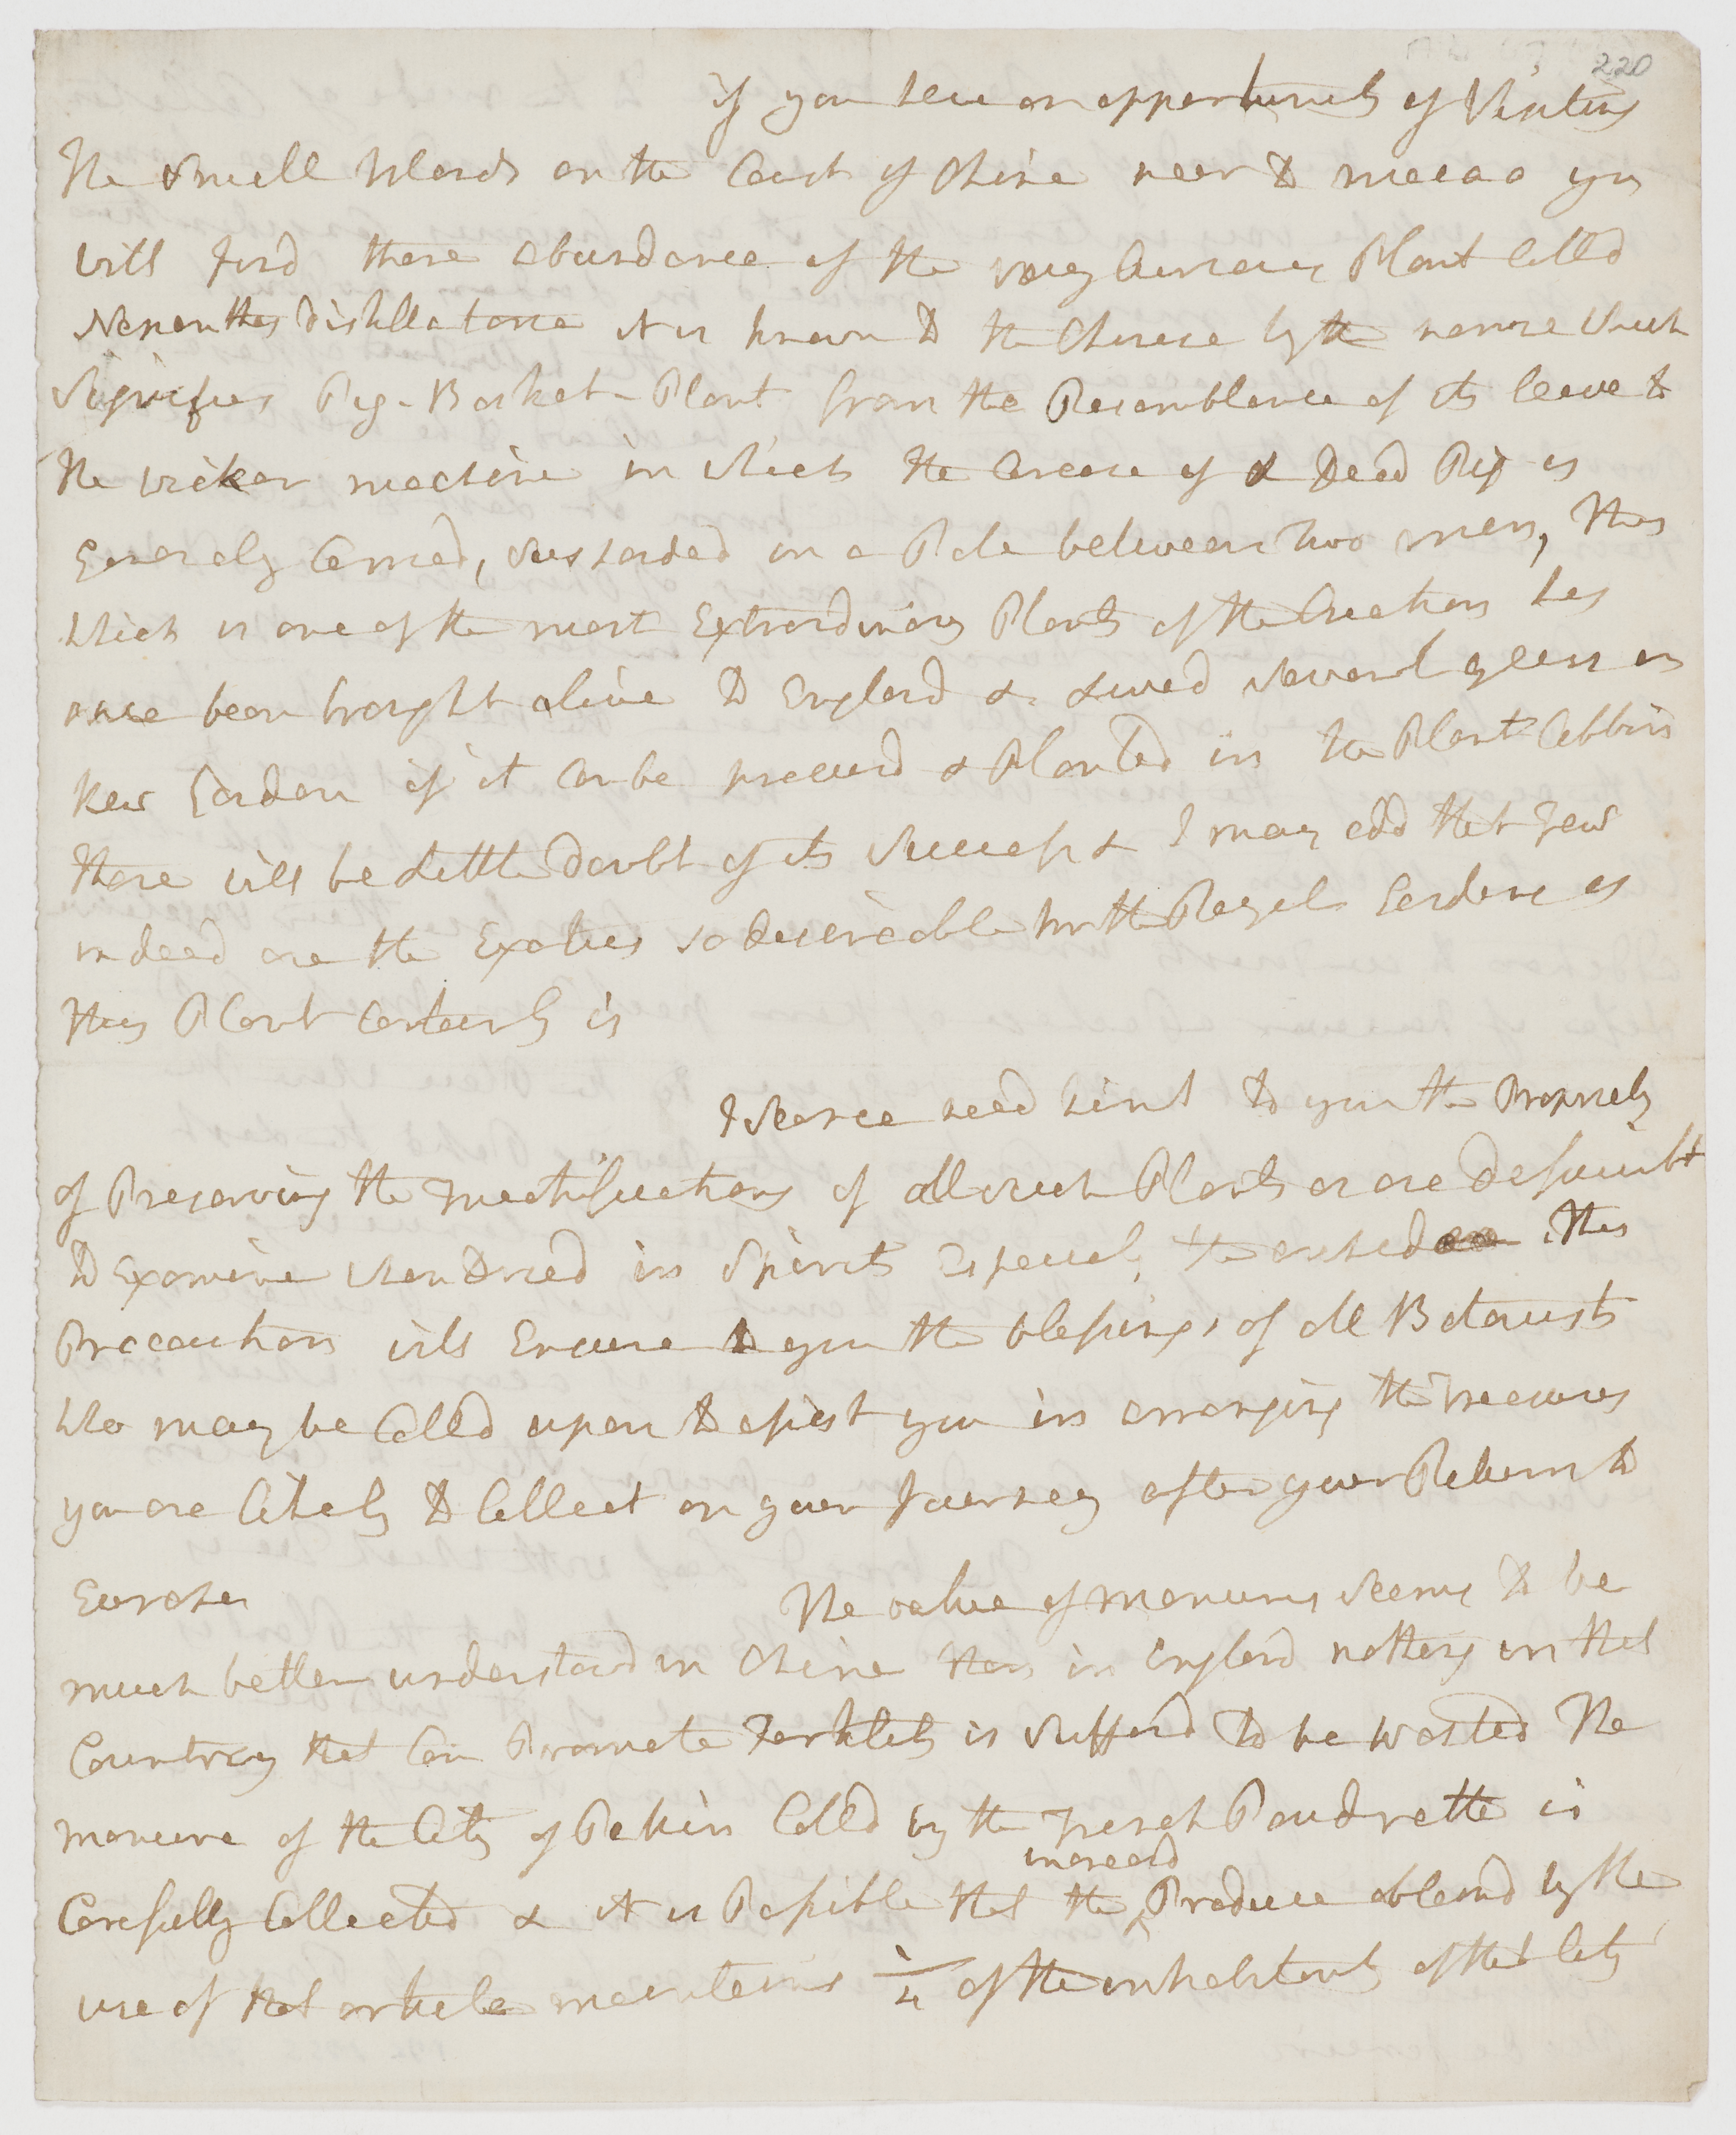 220
if you have an opportunity of Visiting
The Small Islands on the Coast of China near to macao you
will find there abundance of the very Curious Plant Calld
Nepenthes distillatoria it is known to the Chinese by the name which
Signifies Pig-Basket-Plant from the Resemblance of its leave to
the wicker machine in which the Carcase of a Dead Pig is
Generaly Carried, suspended on a Pole between two men, This
which is one of the most Extraordinary Plants of the Creation has
once been brought alive to England & livd several years in
Kew Garden if it can be procurd & Planted in the Plant Cabbin
there will be Little doubt of its Success & I may add that Few
indeed are the Exotics so desireable for the Royal Gardens as
this Plant Certainly is
I Scarce need hint to you the Propriety
of Preserving the Fructifications of all such Plants as are dificult
to Examine when Dried in Spirits Especialy the orchideae This
Precaution will Ensure to you the blessings of all Botanists
who may be Calld upon to assist you in arranging the Treasures
you are likely to Collect on your Journey after your Return to
Europe The value of manures Seems to be
much better understood in China than in England nothing in that
Country that Can Promote Fertility is Sufferd to be wasted The
manure of the City of Pekin Calld by the French Poudrette is
increasd
Carefully Collected & it is Possible that the ^ Produce obtaind by the
use of that article maintains 1/4 of the inhabitants of that City